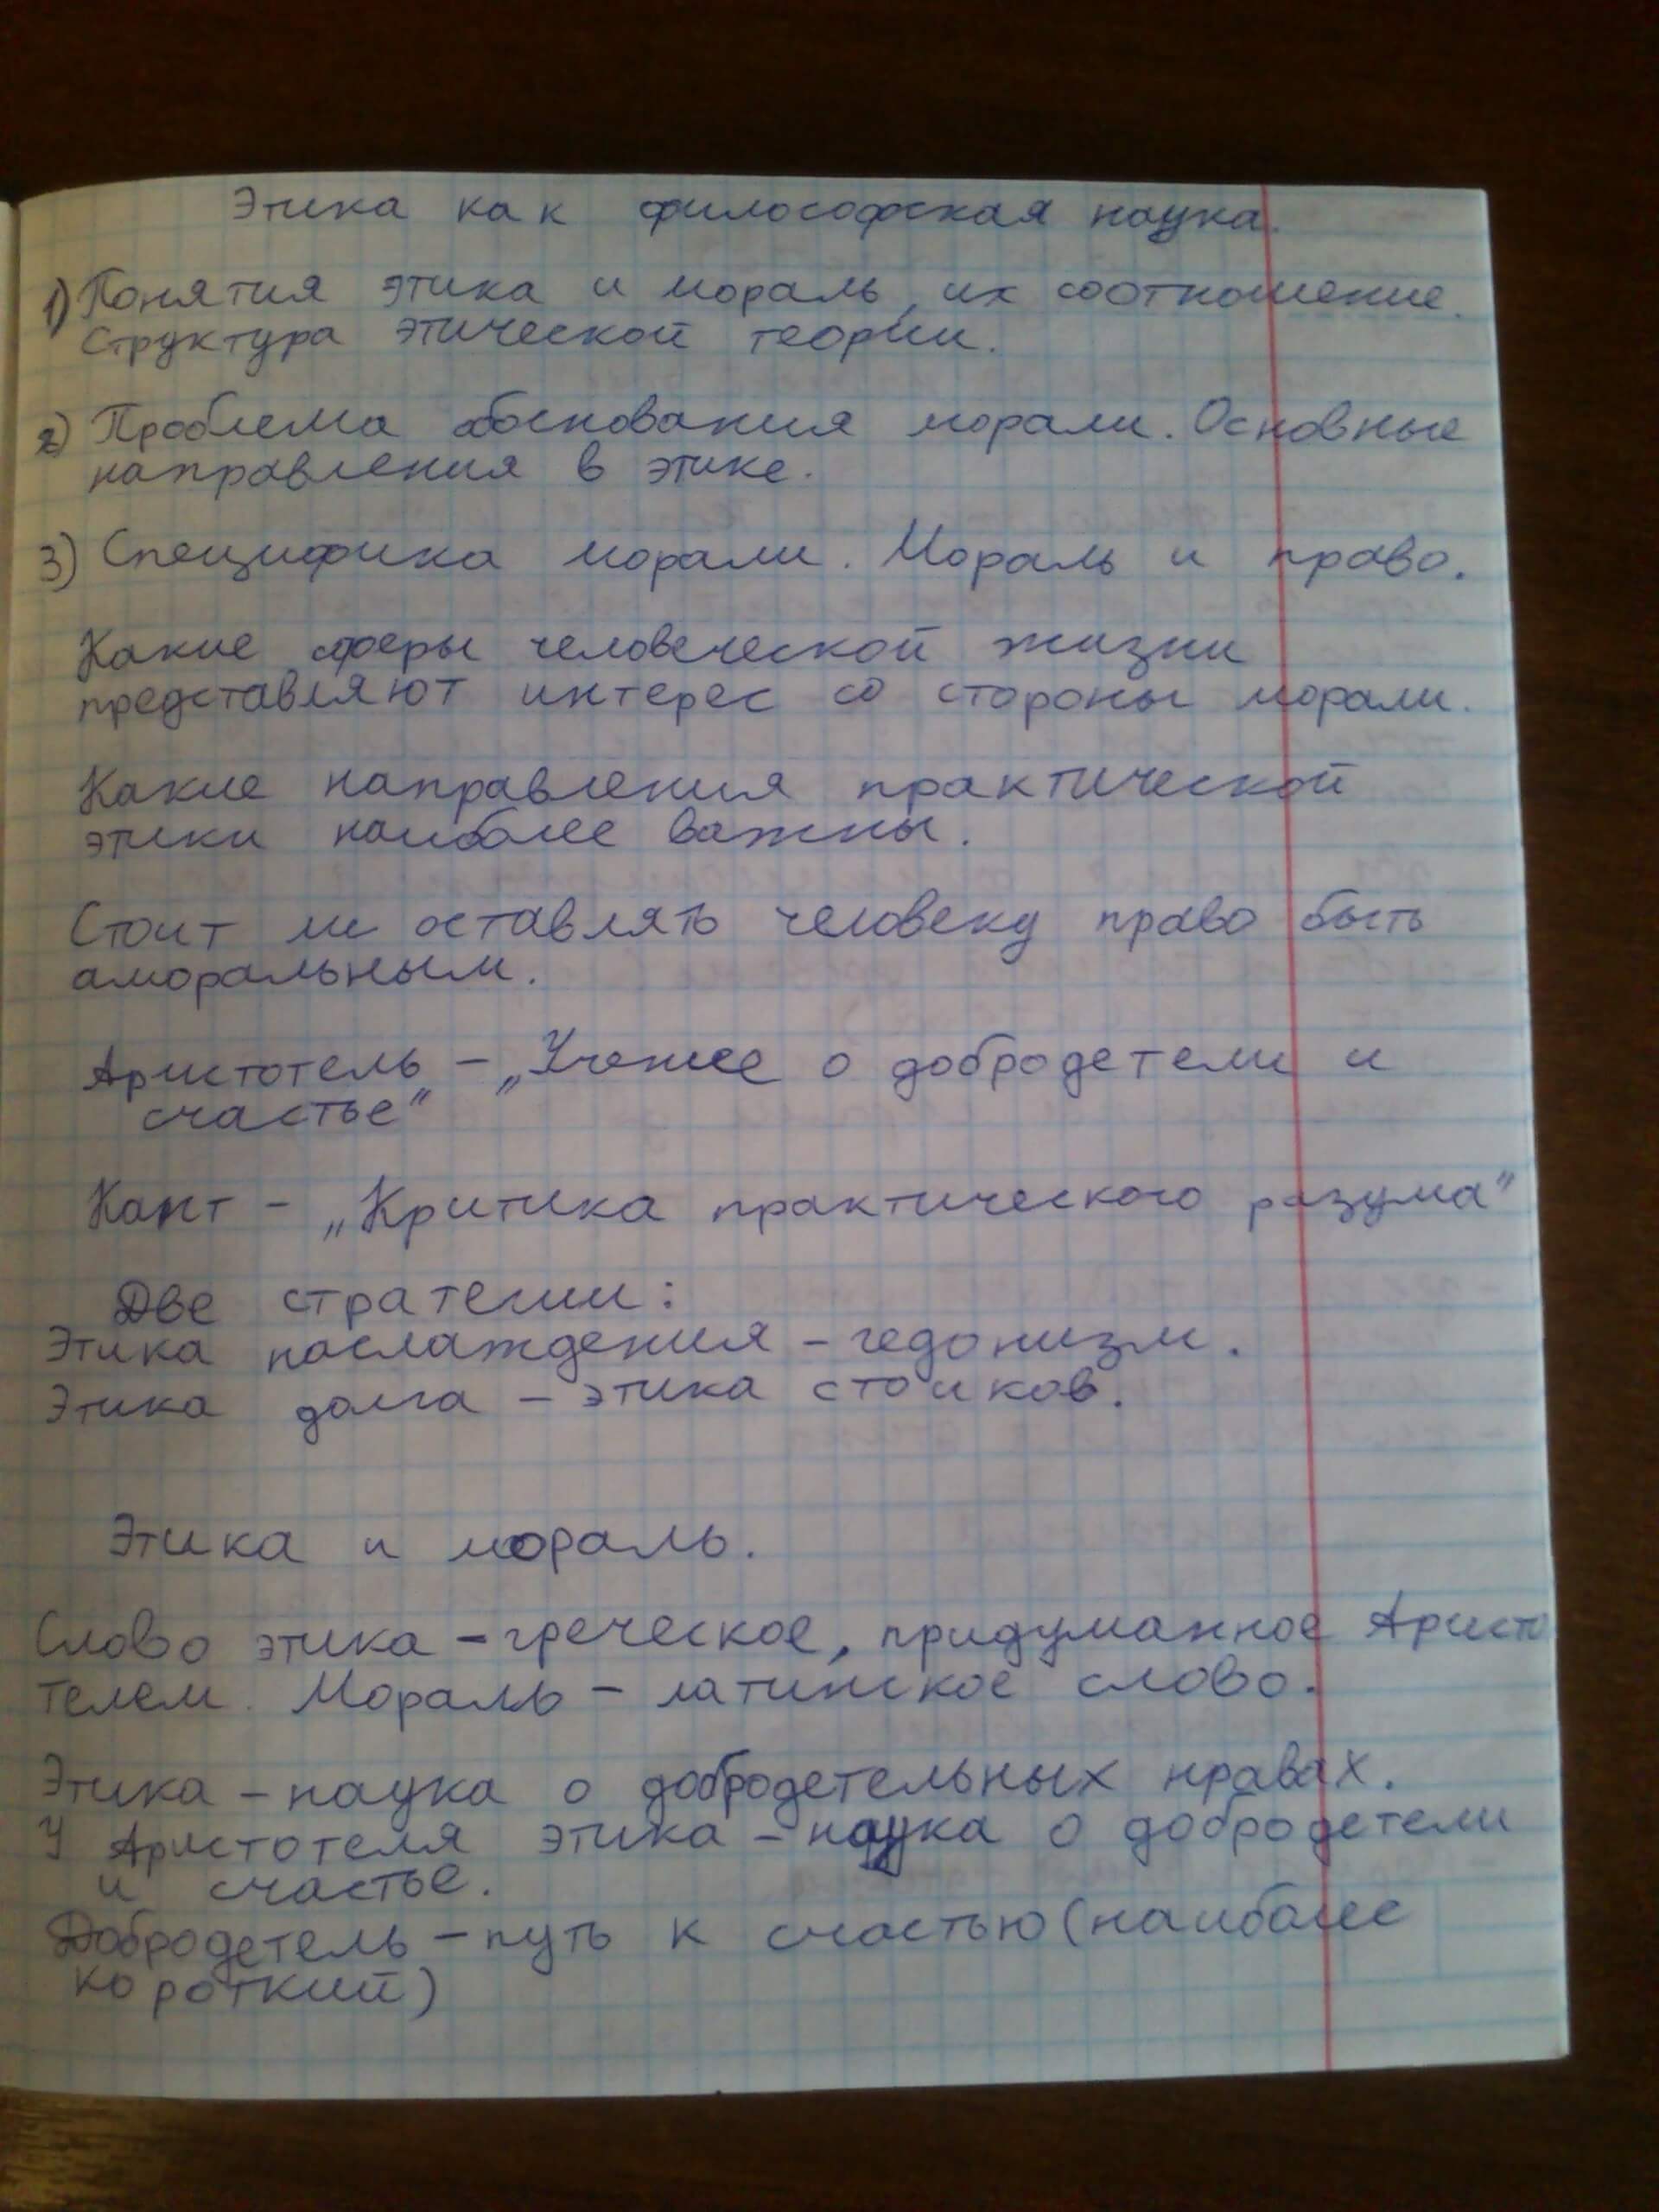 Этика как философская наука.
1) Понятия этика и мораль, их соотношение.
Структура этической теории.
2) Проблема обоснования морали. Основные
направления в этике.
3) Специфика морали. Мораль и право.
Какие сферы человеческой жизни
представляют интерес со стороны морали.
Какие направления практической
этики наиболее важны.
Стоит ли оставлять человеку право быть
аморальным.
Аристотель – „Учение о добродетели и
счастье"
Кант – „Критика практического разума"
Две стратегии:
Этика наслаждения – гедонизм.
Этика долга – этика стоиков.
Этика и мораль.
Слово этика – греческое, придуманное Аристо
телем. Мораль – латинское слово.
Этика – наука о добродетельных нравах.
У Аристотеля этика – наука о добродетели
и счастье.
Добродетель – путь к счастью (наиболее
короткий)